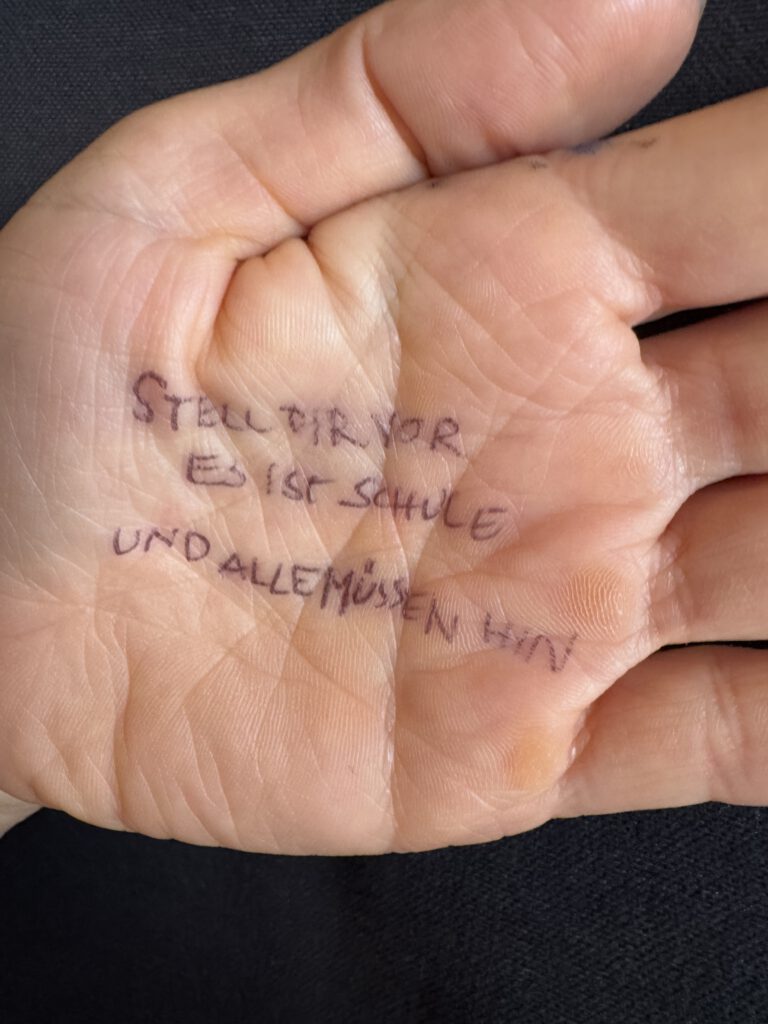 STELL DIR VOR
ES IST SCHULE
UND ALLE MÜSSEN HIN